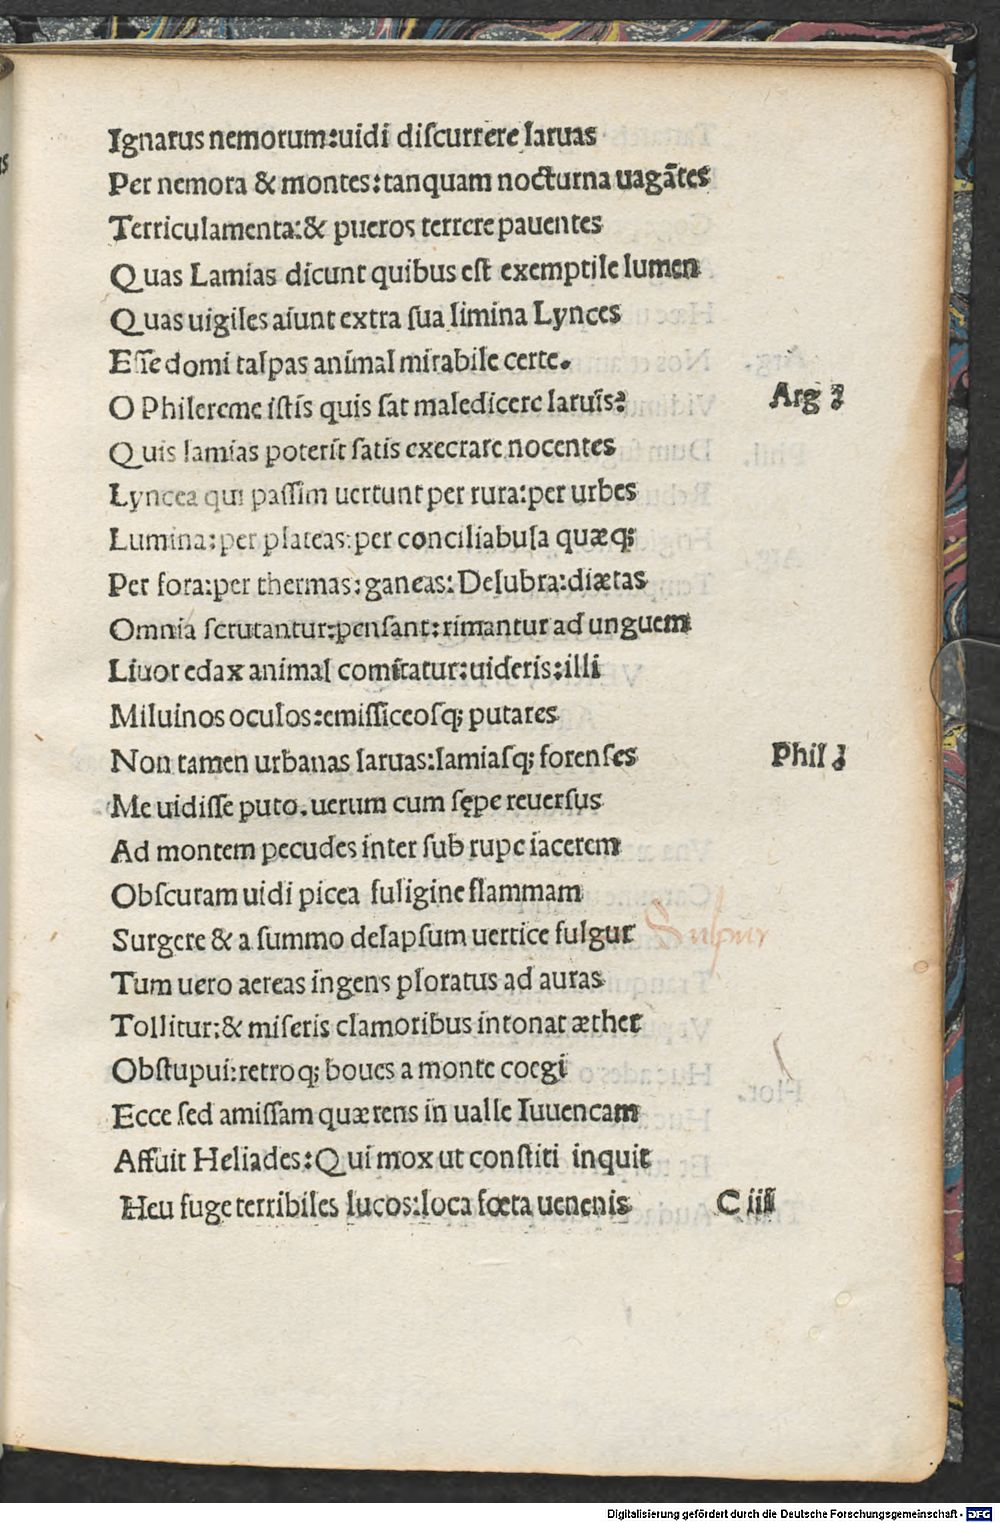 Ignarus nemorum:uidi diſcurrere laruas
Per nemora & montes:tanquam nocturna uagātes
Terriculamenta:& pueros terrere pauentes
Quas Lamias dicunt quibus eſt exemptile lumen
Quas uigiles aiunt extra ſua limina Lynces
Eſſe domi talpas animal mirabile certe.
O Philereme iſtis quis ſat maledicere laruis? Arg
Quis lamias poterit ſatis execrare nocentes
Lyncea qui paſſim uertunt per rura:per urbes
Lumina:per plateas:per conciliabula quæq;
Per fora:per thermas:ganeas:Delubra:diætas
Omnia ſcrutantur:penſant:rimantur ad unguem
Liuor edax animal comitatur:uideris:illi
Miluinos oculos:emiſſiceoſq; putares
Non tamen urbanas laruas:lamiaſq; forenſes Phil
Me uidiſſe puto.uerum cum ſępe reuerſus
Ad montem pecudes inter ſub rupe iacerem
Obſcuram uidi picea fuligine flammam
Surgere & a ſummo delapſum uertice fulgur Sulpur
Tum uero aereas ingens ploratus ad auras
Tollitur:& miſeris clamoribus intonat æther
Obſtupui:retroq; boues a monte coegi
Ecce ſed amiſſam quærens in ualle Iuuencam
Affuit Heliades:Qui mox ut conſtiti inquit
Heu fuge terribiles lucos:loca fœta uenenis C iii
Digitalisierung gefördert durch die Deutsche Forschungsgemeinschaft - DFG